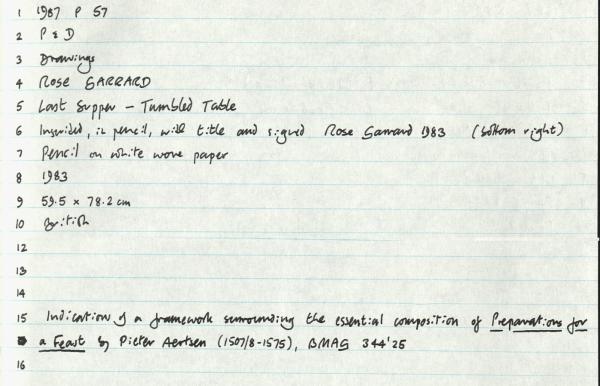 1 1987 P 57
2 P & D
3 Drawings
4 Rose GARRARD
5 Last Supper - Tumbled Table
6 Inscribed, in pencil, with title and signed Rose Garrard 1983 (bottom right)
7 Pencil on white wove paper
8 1983
9 59.5 x 78.2 cm
10 British
12
13
14
15 Indication of a framework surrounding the essential composition of Preparations for
a Feast by Pieter Aertsen (1507/8-1575), BMAG 344'25
16